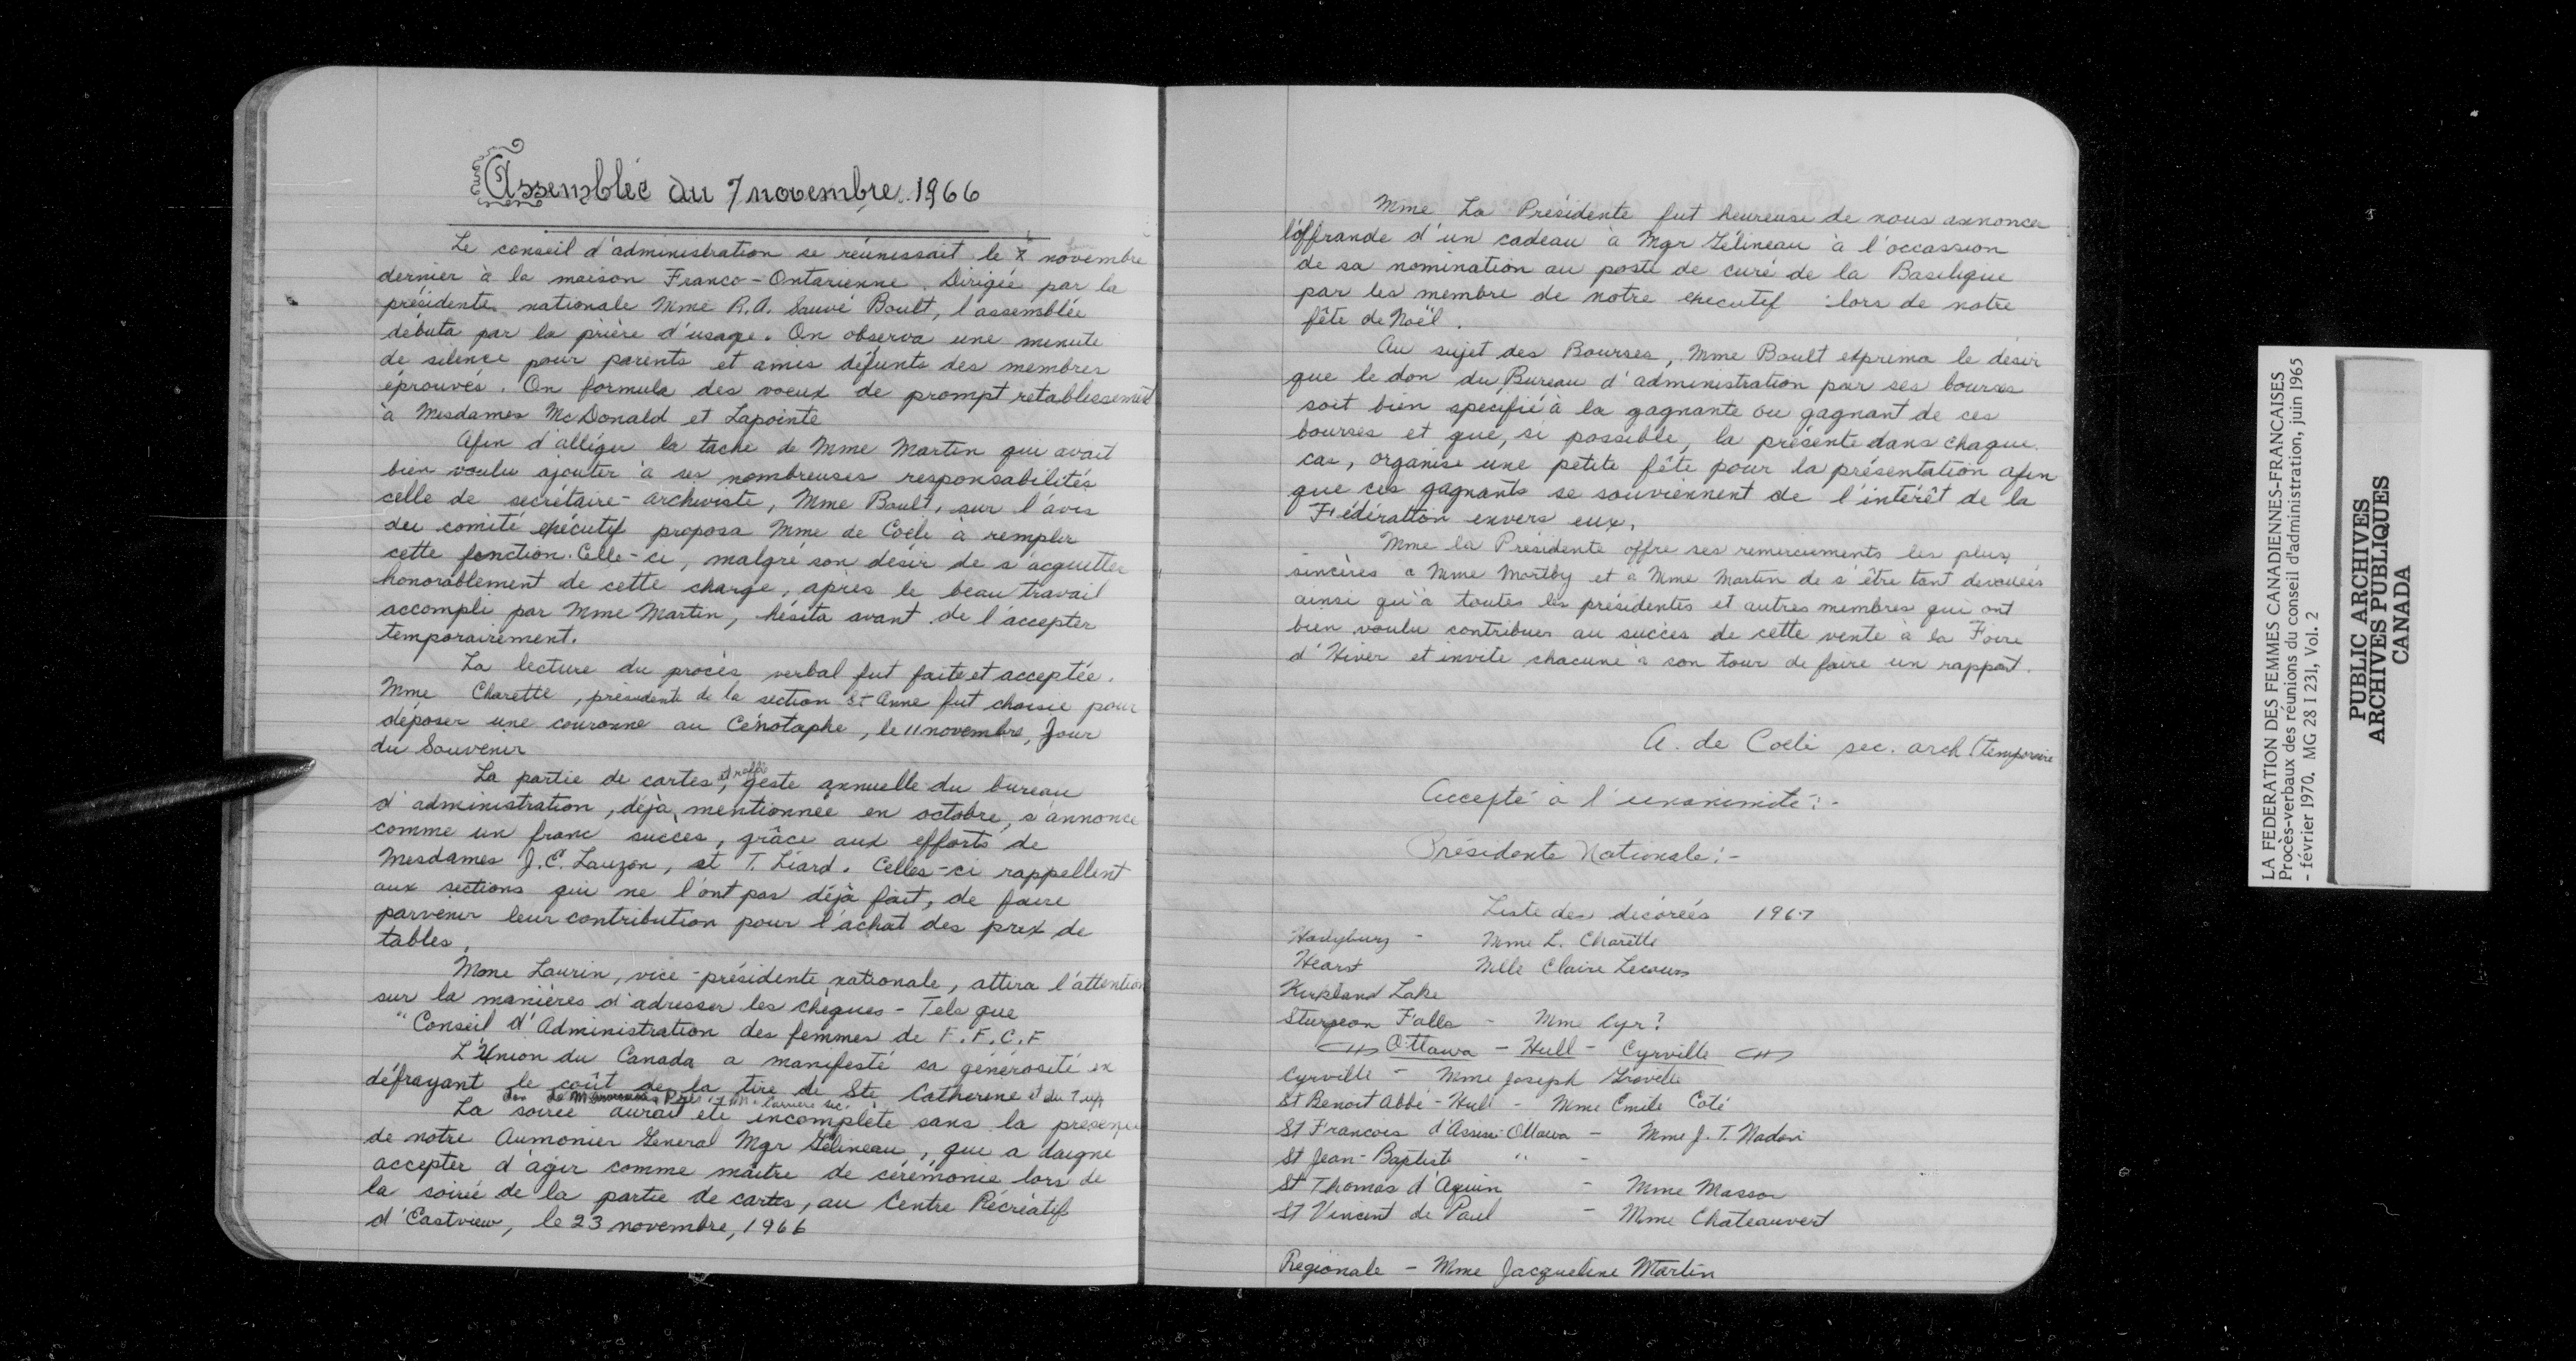 Assemblée du 7 novembre 1966
Le conseil d'administration se réunissait le novembre
dernier à la maison Franco-Ontarienne. Dirigée par la
présidente nationale Mme R.A. Sauvé Boult, l'assemblée
débuta par la prière d'usage. On observa une minute
de silence pour parents et amis défunts des membres
éprouvés. On formula des voeux de prompt retablissement
à Mesdames McDonald et Lapointe
Afin d'alléger la tache de Mme Martin qui avait
bien voulu ajouter à ses nombreuses responsabilités
celle de secrétaire-archiviste, Mme Boult, sur l'avis
du comité exécutif proposa Mme de Coeli à remplir
cette fonction. Celle-ci, malgré son désir de s'acquitter
honorablement de cette charge, après le beau travail
accompli par Mme Martin, hésita avant de l'accepter
temporairement.
La lecture du procès verbal fut faite et acceptée.
Mme Charette, présidente de la section St Anne fut choisie pour
déposer une couronne au Cénotaphe, le 11 novembre, Jour
du Souvenir
La partie de cartes, et raffle geste annuelle du bureau
d'administration, déjà mentionnée en octobre, s'annonce
comme un franc succes, grâce aux efforts de
Mesdames J.C. Lauzon, et T. Liard. Celles-ci rappellent
aux sections qui ne l'ont pas déjà fait, de faire
parvenir leur contribution pour l'achat des prix de
tables.
Mme Laurin, vice-présidente nationale, attira l'attention
sur la manières d'adresser les chèques - Tels que
"Conseil d'Administration des femmes de F.F.C.F
L'Union du Canada a manifesté sa générosité en
défrayant le coût de la tire de Ste Catherine et du 7 up
La soirée aurait été incomplète sans la présence
de notre Aumonier General Mgr Gélineau, que a daigné
accepter d'agir comme maître de cérémonie lors de
la soirée de la partie de cartes, au Centre Récréatif
d'Eastview, le 23 novembre, 1966
Mme La Présidente fut heureuse de nous annoncer
l'offrande d'un cadeau à Mgr Gélineau à l'occassion
de sa nomination au poste de curé de la Basilique
par les membre de notre executif lors de notre
fête de Noël.
Au sujet des Bourses, Mme Boult exprima le désir
que le don du Bureau d'administration pour ses bourses
soit bien specifié à la gagnante ou gagnant de ces
bourses et que, si possible, la présente dans chaque
cas, organise une petite fête pour la présentation afin
que ces gagnants se souviennent de l'intérêt de la
Fédération envers eux.
Mme la Présidente offre ses remerciements les plus
sincères à Mme Mortby et à Mme Martin de s'être tant devouées
ainsi qu'à toutes les présidentes et autres membres qui ont
bien voulu contribuer au succès de cette vente à la Foire
d'Hiver et invite chacune à son tour de faire un rapport.
A. de Coeli sec. arch (temporaire
Accepté à l'unanimité:-
Présidente Nationale:-
Liste des décorées 1967
Haileybury - Mme L. Charette
Hearst Mlle Claire Lecours
Kirkland Lake
Sturgeon Falls - Mme Cyr?
Ottawa - Hull - Cyrville
Cyrville - Mme Joseph Gravelle
St Benoit Abbé - Hull - Mme Emile Coté
St Francois d'Assise Ottawa - Mme J. T. Nadon
St Jean-Baptiste " -
St Thomas d'Aquin - Mme Masson
St Vincent de Paul - Mme Chateauvert
Régionale - Mme Jacqueline Martin
LA FEDERATION DES FEMMES CANADIENNES-FRANCAISES
Procès-verbaux des réunions du conseil d'administration, juin 1965
- février 1970. MG 28 I 231, Vol. 2
PUBLIC ARCHIVES
ARCHIVES PUBLIQUES
CANADA